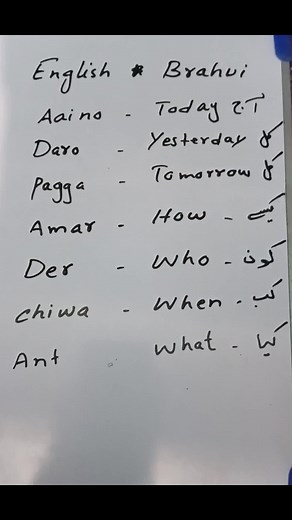 English * Brahui
Aaino - Today آج
Daro - Yesterday کل
Pagga - Tomorrow کل
Amar - How - کیسے
Der - Who - کون
chiwa - When - کب
Ant What - کیا